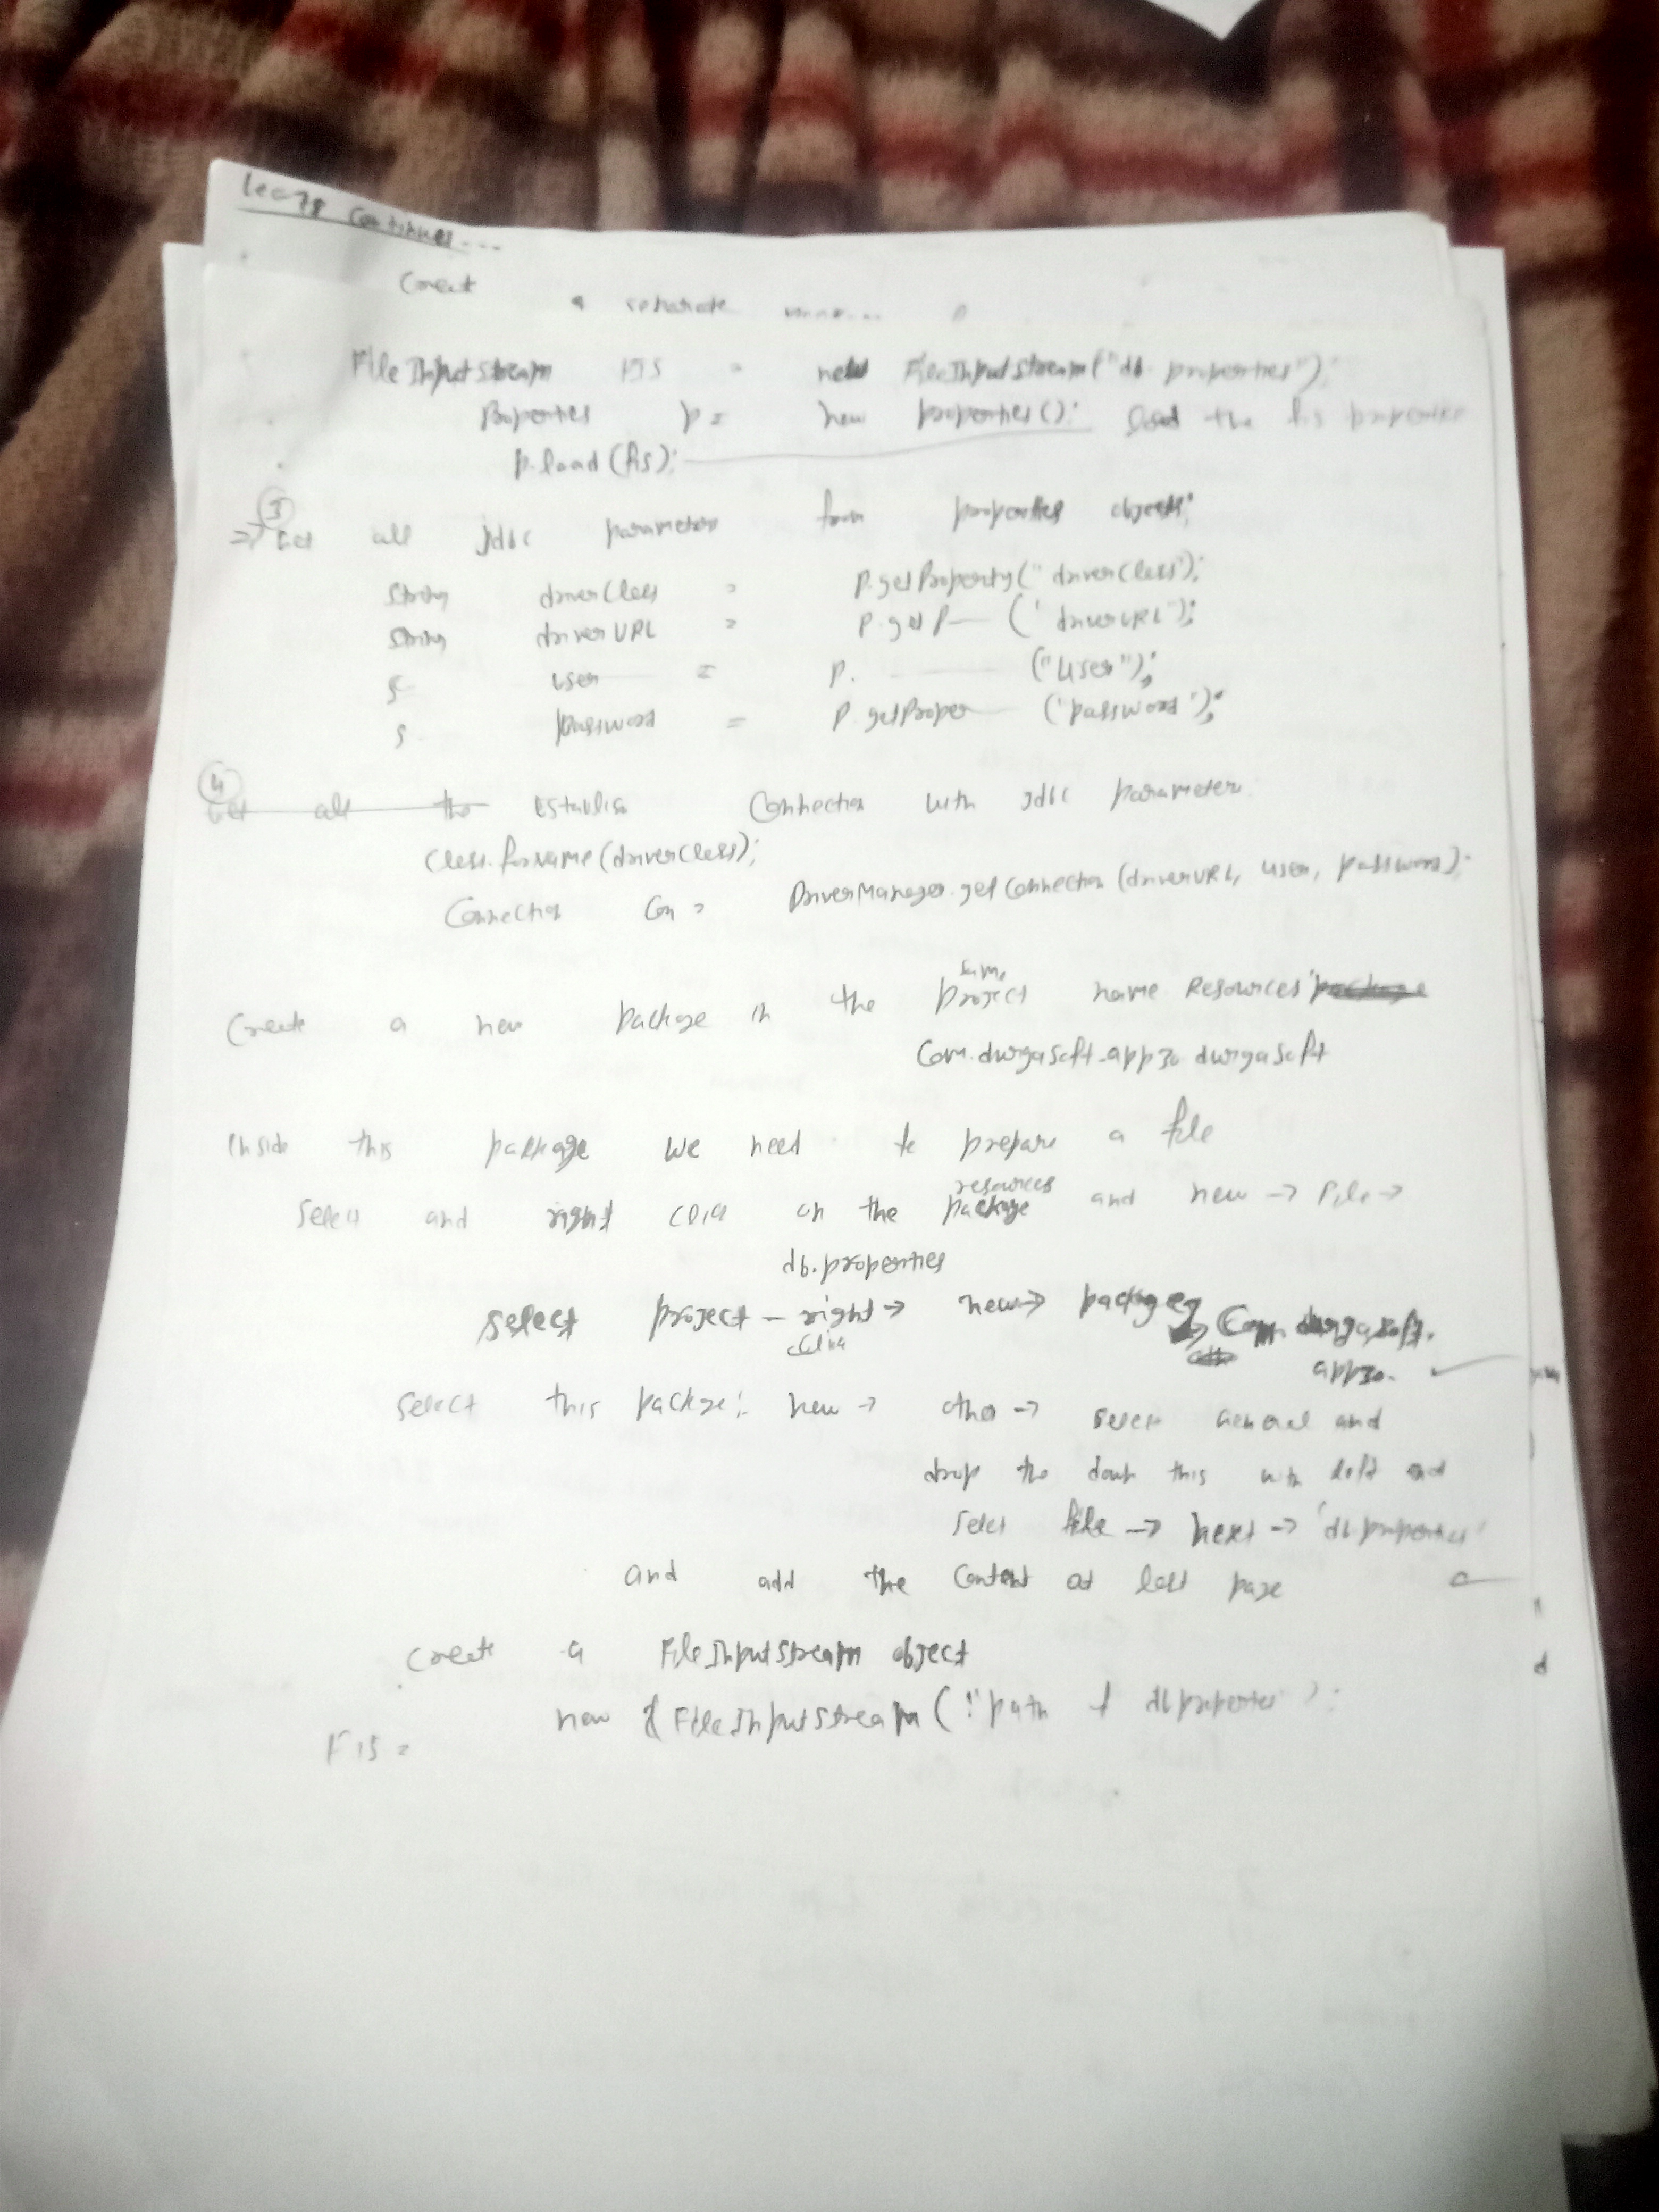 Lec 78 continues...
Creat a separate
FileInputStream FIS = new FileInputStream("db.properties");
Properties p = new properties(); load the fis properties
p.load(fis);
③
=> Get all Jdbc parameter from properties objects;
String driverClass = p.getProperty("driverClass");
String driverURL = p.getP— ("driverURL");
S user = p. — ("user");
S. password = p.getProper— ("password");
④
Get all the Establish Connection with Jdbc parameter
Class.forName(driverClass);
Connection Con = DriverManager.getConnection(driverURL, user, password);
same
Create a new package in the project name Resources package
Com.durgasoft.app30.durgasoft
Inside this package we need to prepare a file
resources
Select and right click on the package and new → File →
db.properties
select project - right → new → package → Com.durgasoft.
click
app30.
select this package: new → other → select General and
drop the down this with left and
select file → next → 'db.properties'
and add the Content at last page
Create a FileInputStream object
FIS = new FileInputStream("path of db.properties");